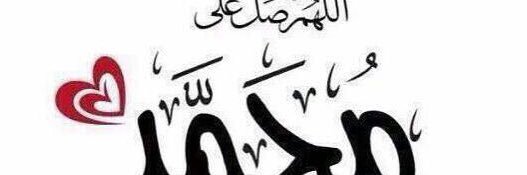 اللهم صل على
محمد